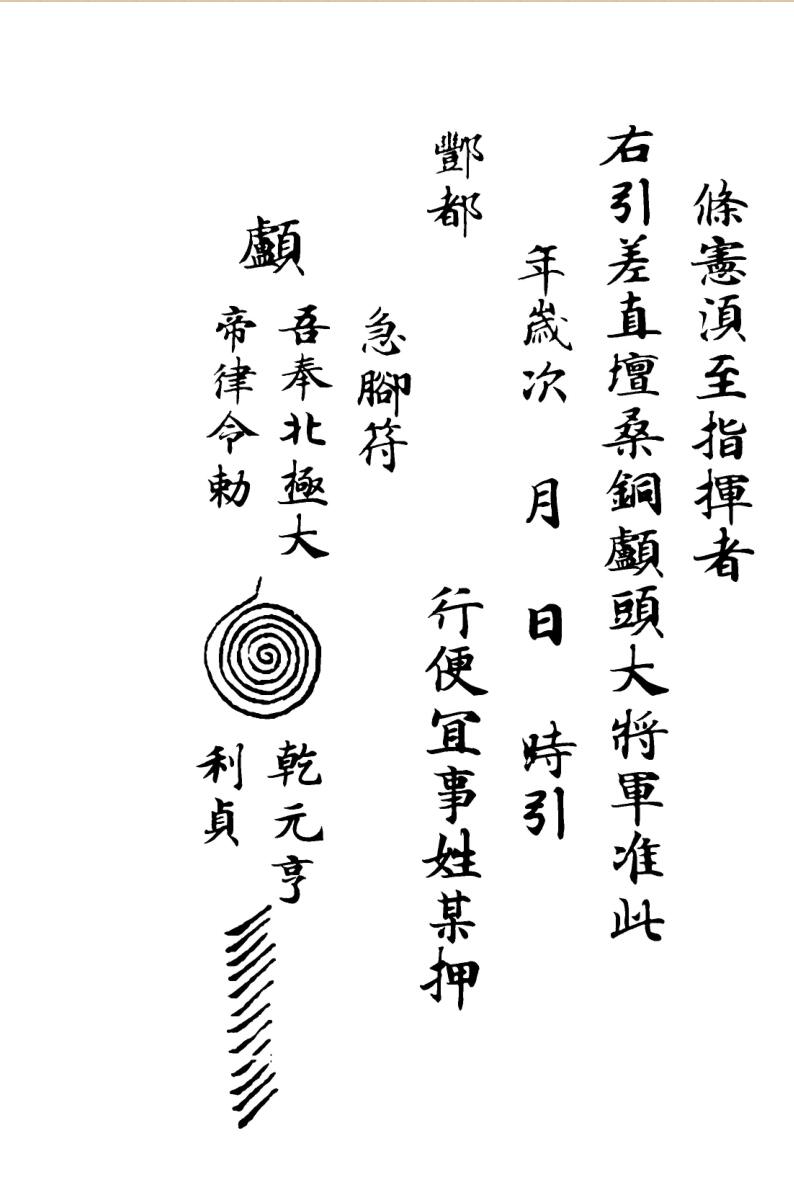 條憲湏至指揮者
右引差直壇桑銅顱頭大將軍准此
年歲次 月 日 時引
酆都 行便冝事姓某押
急腳符
顱
吾奉北極大
帝律令勅
乾元亨
利貞